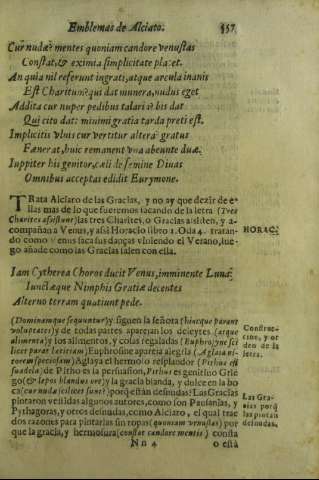 Emblemas de Alciato. 557
Cur nudæ? mentes quoniam candore venustas
Constat, & eximia simplicitate placet.
An quia nil referunt ingrati, atque arcula inanis
Est Charitum? qui dat munera, nudus eget
Addita cur nuper pedibus talaria? bis dat
Qui cito dat: minimi gratia tarda preti est.
Implicitis vlnis cur vertitur altera? gratus
Fænerat, huic remanent vna abeunte duæ.
Iuppiter his genitor, cæli de semine Diuas
Omnibus acceptas edidit Eurymone.
TRata Alciato de las Gracias, y no ay que dezir de e-
llas mas de lo que fueremos sacando de la letra (Tres
Charites assistunt) las tres Charites, o Gracias assisten, y a-
compañan a Venus, y assi Horacio libro 1. Oda 4. tratan-
do como venus saca sus danças viniendo el Verano, lue-
go añade como las Gracias salen con ella.
HORAC.
Iam Cytherea Choros ducit Venus, imminente Luna:
Iunctæque Nimphis Gratiæ decentes
Alterno terram quatiunt pede.
(Dominamque sequuntur) y siguen la señora (hincque parant
voluptates) y de todas partes aparejan los deleytes (atque
alimenta) y los alimentos, y cosas regaladas (Euphrosyne sci
licet parat letitiam) Euphrosine apareja alegria (Aglaia ni-
torem speciosum) Aglaya el hermoso resplandor (Pithus est
suadela) de Pitho es la persuasion, Pithus es genitiuo Grie
go (& lepos blandus ore) y la gracia blanda, y dulce en la bo
ca (cur nudæ scilicet sunt?) porq̃ están desnudas? Las Gracias
pintaron vestidas algunos autores, como son Pausanias, y
Pythagoras, y otros desnudas, como Alciato, el qual trae
dos razones para pintarlas sin ropas (quoniam venustas) por
que la gracia, y hermosura (constat candore mentis) consta
Construc-
cion, y or
den de la
letra.
Las Gra-
cias porq̃
las pintan
desnudas.
Nn 4 o está